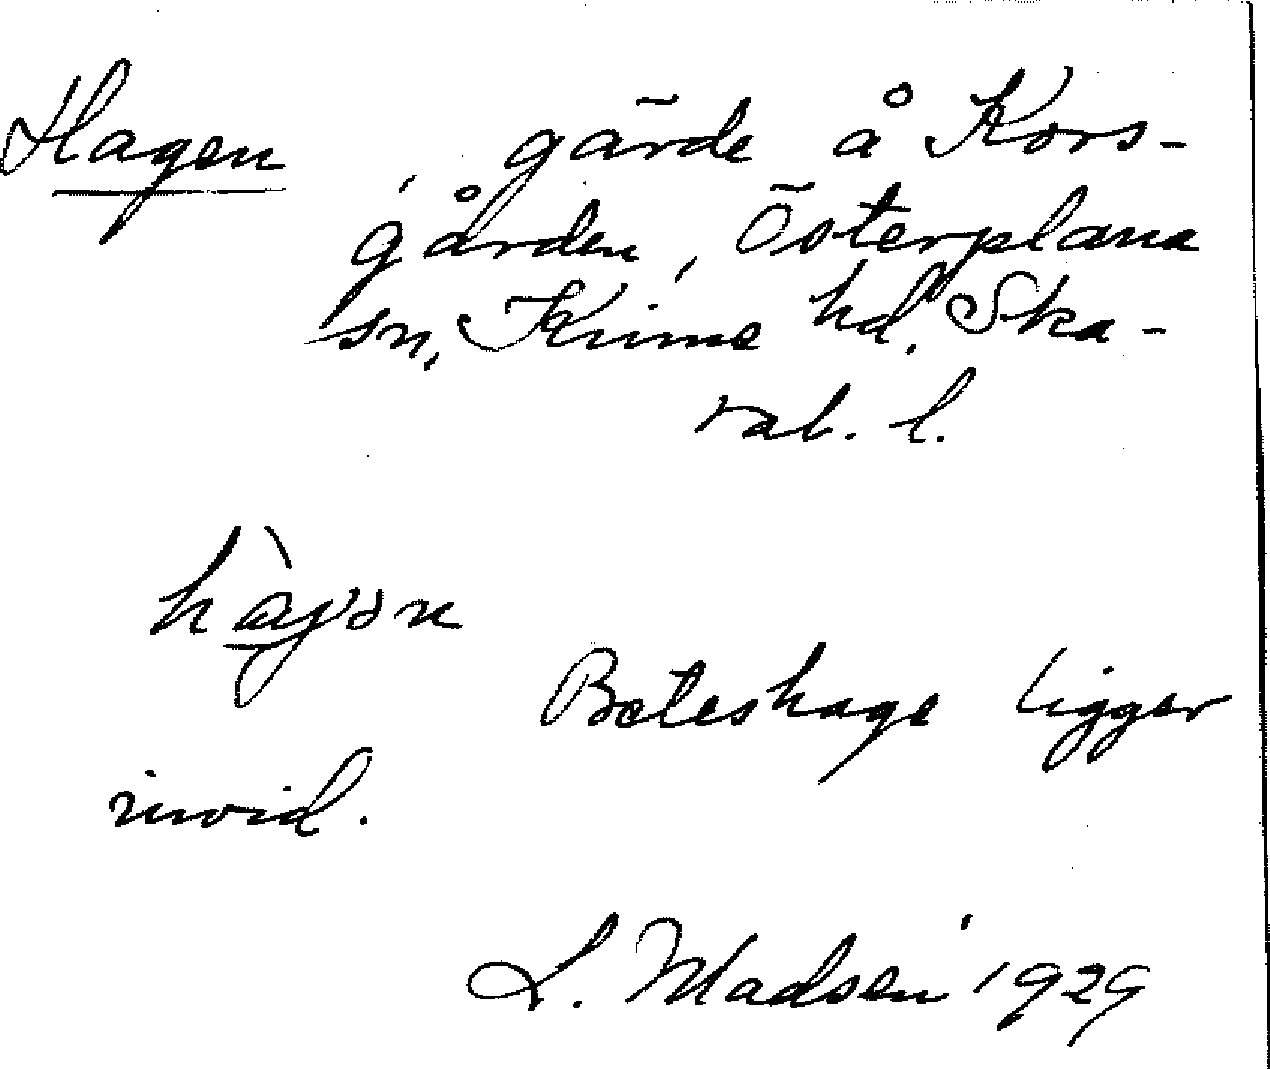 Hagen, gärde å Kors-
gården, Österplana
sn, Kinne hd. Ska-
rab. l.
Beteshage ligger
invid.
L. Madsen 1929